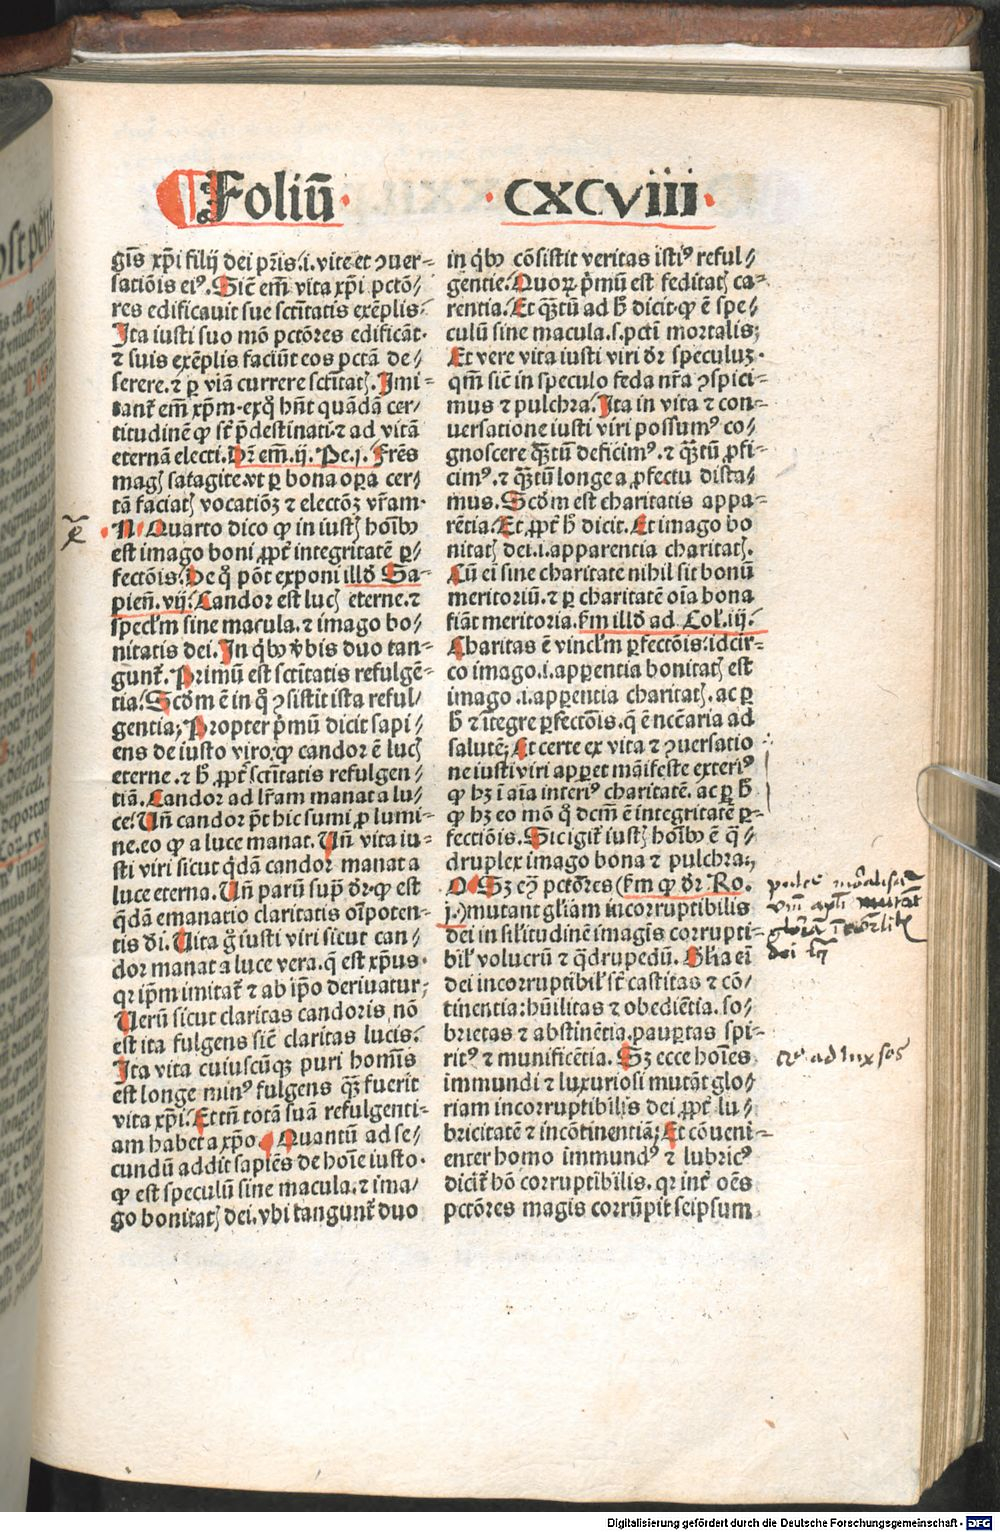 Foliū · CXCVIII ·
gis xp̄i filij dei pr̄is .i. vite et ꝯuer⸗
satiōis eiꝰ. Sic̄ em̄ vita xp̄i pctō⸗
res edificauit sue sctītatis exēplis.
Ita iusti suo mō pctōres edificāt.
⁊ suis exēplis faciūt eos pctā de⸗
serere. ⁊ ꝑ viā currere sctītatꝭ. Imi⸗
tant᷑ em̄ xp̄m. ex qͦ hn̄t quādā cer⸗
titudinē ꝙ st̄ p̄destinati. ⁊ ad vitā
eternā electi. Vn̄ em̄ .ij. Pe. j. Frēs
magꝭ satagite. vt ꝑ bona oꝑa cer⸗
tā faciatꝭ vocatiōꝫ ⁊ electōꝫ vr̄am.
N. Quarto dico ꝙ in iustꝭ hoībꝰ
est imago boni ꝓpt᷑ integritatē ꝑ⸗
fectōis. De qͦ pōt exponi illd̓ Sa⸗
pien̄. vij. Candor est lucꝭ eterne. ⁊
specl̄m sine macula. ⁊ imago bo⸗
nitatis dei. In qͥbꝰ v̓bis duo tan⸗
gunt᷑. Primū est sctītatis refulgē⸗
tia. Scd̓m ē in qͦ ꝯsistit ista reful⸗
gentia; Propter p̄mū dicit sapi⸗
ens de iusto viro. ꝙ candor ē lucꝭ
eterne. ⁊ h̓ ꝓpt᷑ sctītatis refulgen⸗
tiā. Candor ad lr̄am manat a lu⸗
ce. Vn̄ candor p̄t hic sumi ꝓ lumi⸗
ne. eo ꝙ a luce manat. Vn̄ vita iu⸗
sti viri sicut qͥdā candor manat a
luce eterna. Vn̄ parū supͣ dr̄. ꝙ est
qͥdā emanatio claritatis oīpoten⸗
tis d̓i. Vita g̓ iusti viri sicut can⸗
dor manat a luce vera. q̄ est xp̄us.
qꝛ ip̄m imitat᷑ ⁊ ab ip̄o deriuatur;
Verū sicut claritas candoris nō
est ita fulgens sic̄ claritas lucis.
Ita vita cuiuscūqꝫ puri homīs
est longe minꝰ fulgens qͣꝫ fuerit
vita xp̄i. Et tn̄ totā suā refulgenti⸗
am habet a xp̄o. Quantū ad se⸗
cundū addit sapiēs de hoīe iusto.
ꝙ est speculū sine macula. ⁊ ima⸗
go bonitatꝭ dei. vbi tangunt᷑ duo
in qͥbꝰ cōsistit veritas istiꝰ reful⸗
gentie. Quoꝝ p̄mū est feditatꝭ ca⸗
rentia. Et qͣꝫtū ad h̓ dicit. ꝙ ē spe⸗
culū sine macula. s. pcti mortalis;
Et vere vita iusti viri dr̄ speculuꝫ.
qm̄ sic̄ in speculo feda nr̄a ꝯspici⸗
mus ⁊ pulchra. Ita in vita ⁊ con⸗
uersatione iusti viri possumꝰ co⸗
gnoscere qͣꝫtū deficimꝰ. ⁊ qͣꝫtū ꝓfi⸗
cimꝰ. ⁊ qͣꝫtū longe a ꝑfectu dista⸗
mus. Scd̓m est charitatis appa⸗
rētia. Et ꝓpt᷑ h̓ dicit. Et imago bo
nitatꝭ dei. i. apparentia charitatꝭ.
Cū ei̅ sine charitate nihil sit bonū
meritoriū. ⁊ ꝑ charitatē oīa bona
fiāt meritoria. km̄ illd̓ ad Col̓. iij.
Charitas ē vincl̄m ꝑfectōis: idcir⸗
co imago .i. apꝑentia bonitatꝭ est
imago .i. apꝑentia charitatꝭ. ac ꝑ
h̓ ⁊ īt̄egre ꝑfectōis. q̄ ē nccāria ad
salutē; Et certe ex vita ⁊ ꝯuersatio
ne iusti viri apꝑet māifeste exteriꝰ
ꝙ hꝫ ī aīa interiꝰ charitatē. ac ꝑ h̓
ꝙ hꝫ eo mō qͦ dcm̄ ē integritatē ꝑ⸗
fectiōis. Sic igit᷑ iustꝭ hoībꝰ ē qͣ⸗
druplex imago bona ⁊ pulchra;
O. Sꝫ eꝯ pctōres (km̄ ꝙ dr̄ Ro.
j.) mutant gl̓iam incorruptibilis
dei in sil̓itudinē imagīs corrupti⸗
bil̓ volucrū ⁊ qͣdrupedū. Gl̓ia ei̅
dei incorruptibil̓ st̄ castitas ⁊ cō⸗
tinentia: hūilitas ⁊ obediētia. so⸗
brietas ⁊ abstinētia. pauꝑtas spi⸗
ritꝰ ⁊ munificētia. Sꝫ ecce hoīes
immundi ⁊ luxuriosi mutāt glo⸗
riam incorruptibilis dei ꝓpt᷑ lu⸗
bricitatē ⁊ incōtinentiā; Et cōueni⸗
enter homo immundꝰ ⁊ lubricꝰ
dicit᷑ hō corruptibilis. qꝛ int᷑ oēs
pctōres magis corrūpit seipsum
Digitalisierung gefördert durch die Deutsche Forschungsgemeinschaft - DFG